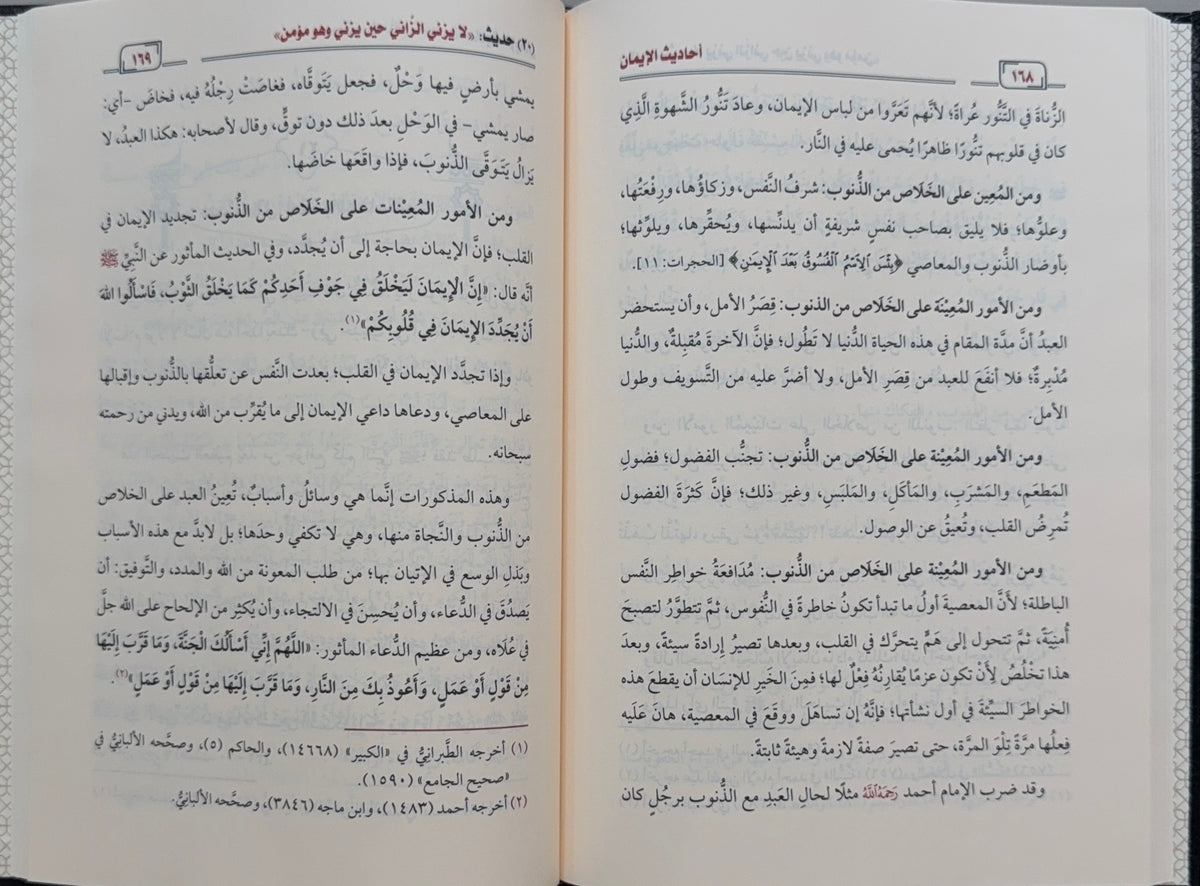 أحاديث الإيمان
١٦٨
الزُّناةَ في التَنُّور عُراةً؛ لأنَّهم تَعَرَّوا من لباس الإيمان، وعادَ تَنُّورُ الشَّهوةِ الَّذِي
كان في قلوبهم تنُّورًا ظاهرًا يُحمى عليه في النَّار.
ومن المُعِين على الخَلَاص من الذُّنوب: شرفُ النَّفس، وزكاؤُها، ورِفْعَتُها،
وعلوُّها؛ فلا يليق بصاحب نفسٍ شريفةٍ أن يدنِّسها، ويُحقِّرها، ويلوِّثها؛
بأوضار الذُّنوب والمعاصي ﴿بِئْسَ ٱلِٱسْمُ ٱلْفُسُوقُ بَعْدَ ٱلْإِيمَٰنِ﴾ [الحجرات: ١١].
ومن الأمور المُعِيْنَة على الخَلَاص من الذنوب: قِصَرُ الأمل، وأن يستحضر
العبدُ أنَّ مدَّة المقام في هذه الحياة الدُّنيا لا تَطُول؛ فإنَّ الآخرةَ مُقبِلةٌ، والدُّنيا
مُدْبِرةٌ؛ فلا أنفَعَ للعبد من قِصَرِ الأمل، ولا أضرَّ عليه من التَّسويف وطول
الأمل.
ومن الأمور المُعِيْنة على الخَلَاص من الذُّنوب: تجنُّب الفضول؛ فضولِ
المَطعَمِ، والمَشرَبِ، والمَأكَلِ، والمَلبَسِ، وغير ذلك؛ فإنَّ كَثرَةَ الفضول
تُمرِضُ القلب، وتُعيقُ عن الوصول.
ومن الأمور المُعِيْنة على الخَلَاص من الذُّنوب: مُدَافعَةُ خواطِرِ النَّفس
الباطلة؛ لأنَّ المعصية أولُ ما تبدأ تكونُ خاطرةً في النُّفوس، ثمَّ تتطوَّرُ لتصبحَ
أُمنِيَةً، ثمَّ تتحول إلى هَمٍّ يتحرَّك في القلب، وبعدها تصيرُ إرادةً سيئةً، وبعدَ
هذا تخْلُصُ لِأَنْ تكون عزمًا يُقارنُهُ فِعْلٌ لها؛ فمِنَ الخَيرِ للإنسَان أن يقطعَ هذه
الخواطرَ السيِّئةَ في أول نشأتها؛ فإنَّهُ إن تساهَلَ ووقَعَ في المعصية، هانَ عَلَيه
فِعلُها مرَّةً تِلْوَ المرَّة، حتى تصيرَ صفةً لازمةً وهيئةً ثابتةً.
وقد ضرب الإمام أحمد رَحِمَهُ ٱللَّهُ مثلًا لحال العَبدِ مع الذُّنوب برجُلٍ كان
(٢٠) حديث: «لا يزني الزَّاني حين يزني وهو مؤمن»
١٦٩
يمشي بأرضٍ فيها وَحْلٌ، فجعل يَتَوقَّاه، فغاصَتْ رِجْلُهُ فيه، فخاضَ -أي:
صار يمشي- في الوَحْلِ بعدَ ذلك دون توقٍّ، وقال لأصحابه: هكذا العبدُ، لا
يَزالُ يَتَوَقَّى الذُّنوبَ، فإذا واقَعَها خاضَها.
ومن الأمور المُعِيْنات على الخَلَاص من الذُّنوب: تجديد الإيمان في
القلب؛ فإنَّ الإيمان بحاجة إلى أن يُجدَّد، وفي الحديث المأثور عن النَّبيِّ ﷺ
أنَّه قال: «إِنَّ الْإِيمَانَ لَيَخْلَقُ فِي جَوْفِ أَحَدِكُمْ كَمَا يَخْلَقُ الثَّوْبُ، فَاسْأَلُوا اللهَ
أَنْ يُجَدِّدَ الْإِيمَانَ فِي قُلُوبِكُمْ»(١).
وإذا تجدَّد الإيمان في القلب؛ بعدت النَّفس عن تعلُّقها بالذُّنوب وإقبالها
على المعاصي، ودعاها داعي الإيمان إلى ما يُقرِّب من الله، ويدني من رحمته
سبحانه.
وهذه المذكورات إنَّما هي وسائلُ وأسبابٌ، تُعِينُ العبد على الخلاص
من الذُّنوب والنَّجاة منها، وهي لا تكفي وحدَها؛ بل لابدَّ مع هذه الأسباب
وبَذلِ الوسع في الإتيان بها؛ من طلب المعونة من الله والمدد، والتَّوفيق: أن
يَصدُقَ في الدُّعاء، وأن يُحسِنَ في الالتجاء، وأن يُكثِر من الإلحاح على الله جلَّ
في عُلَاه، ومن عظيم الدُّعاء المأثور: «اللَّهُمَّ إِنِّي أَسْأَلُكَ الْجَنَّةَ، وَمَا قَرَّبَ إِلَيْهَا
مِنْ قَوْلٍ أَوْ عَمَلٍ، وَأَعُوذُ بِكَ مِنَ النَّارِ، وَمَا قَرَّبَ إِلَيْهَا مِنْ قَوْلٍ أَوْ عَمَلٍ»(٢).
(١) أخرجه الطَّبرانيُّ في «الكبير» (١٤٦٦٨)، والحاكم (٥)، وصحَّحه الألبانيُّ في
«صحيح الجامع» (١٥٩٠).
(٢) أخرجه أحمد (١٤٨٣)، وابن ماجه (٣٨٤٦)، وصحَّحه الألبانيُّ.